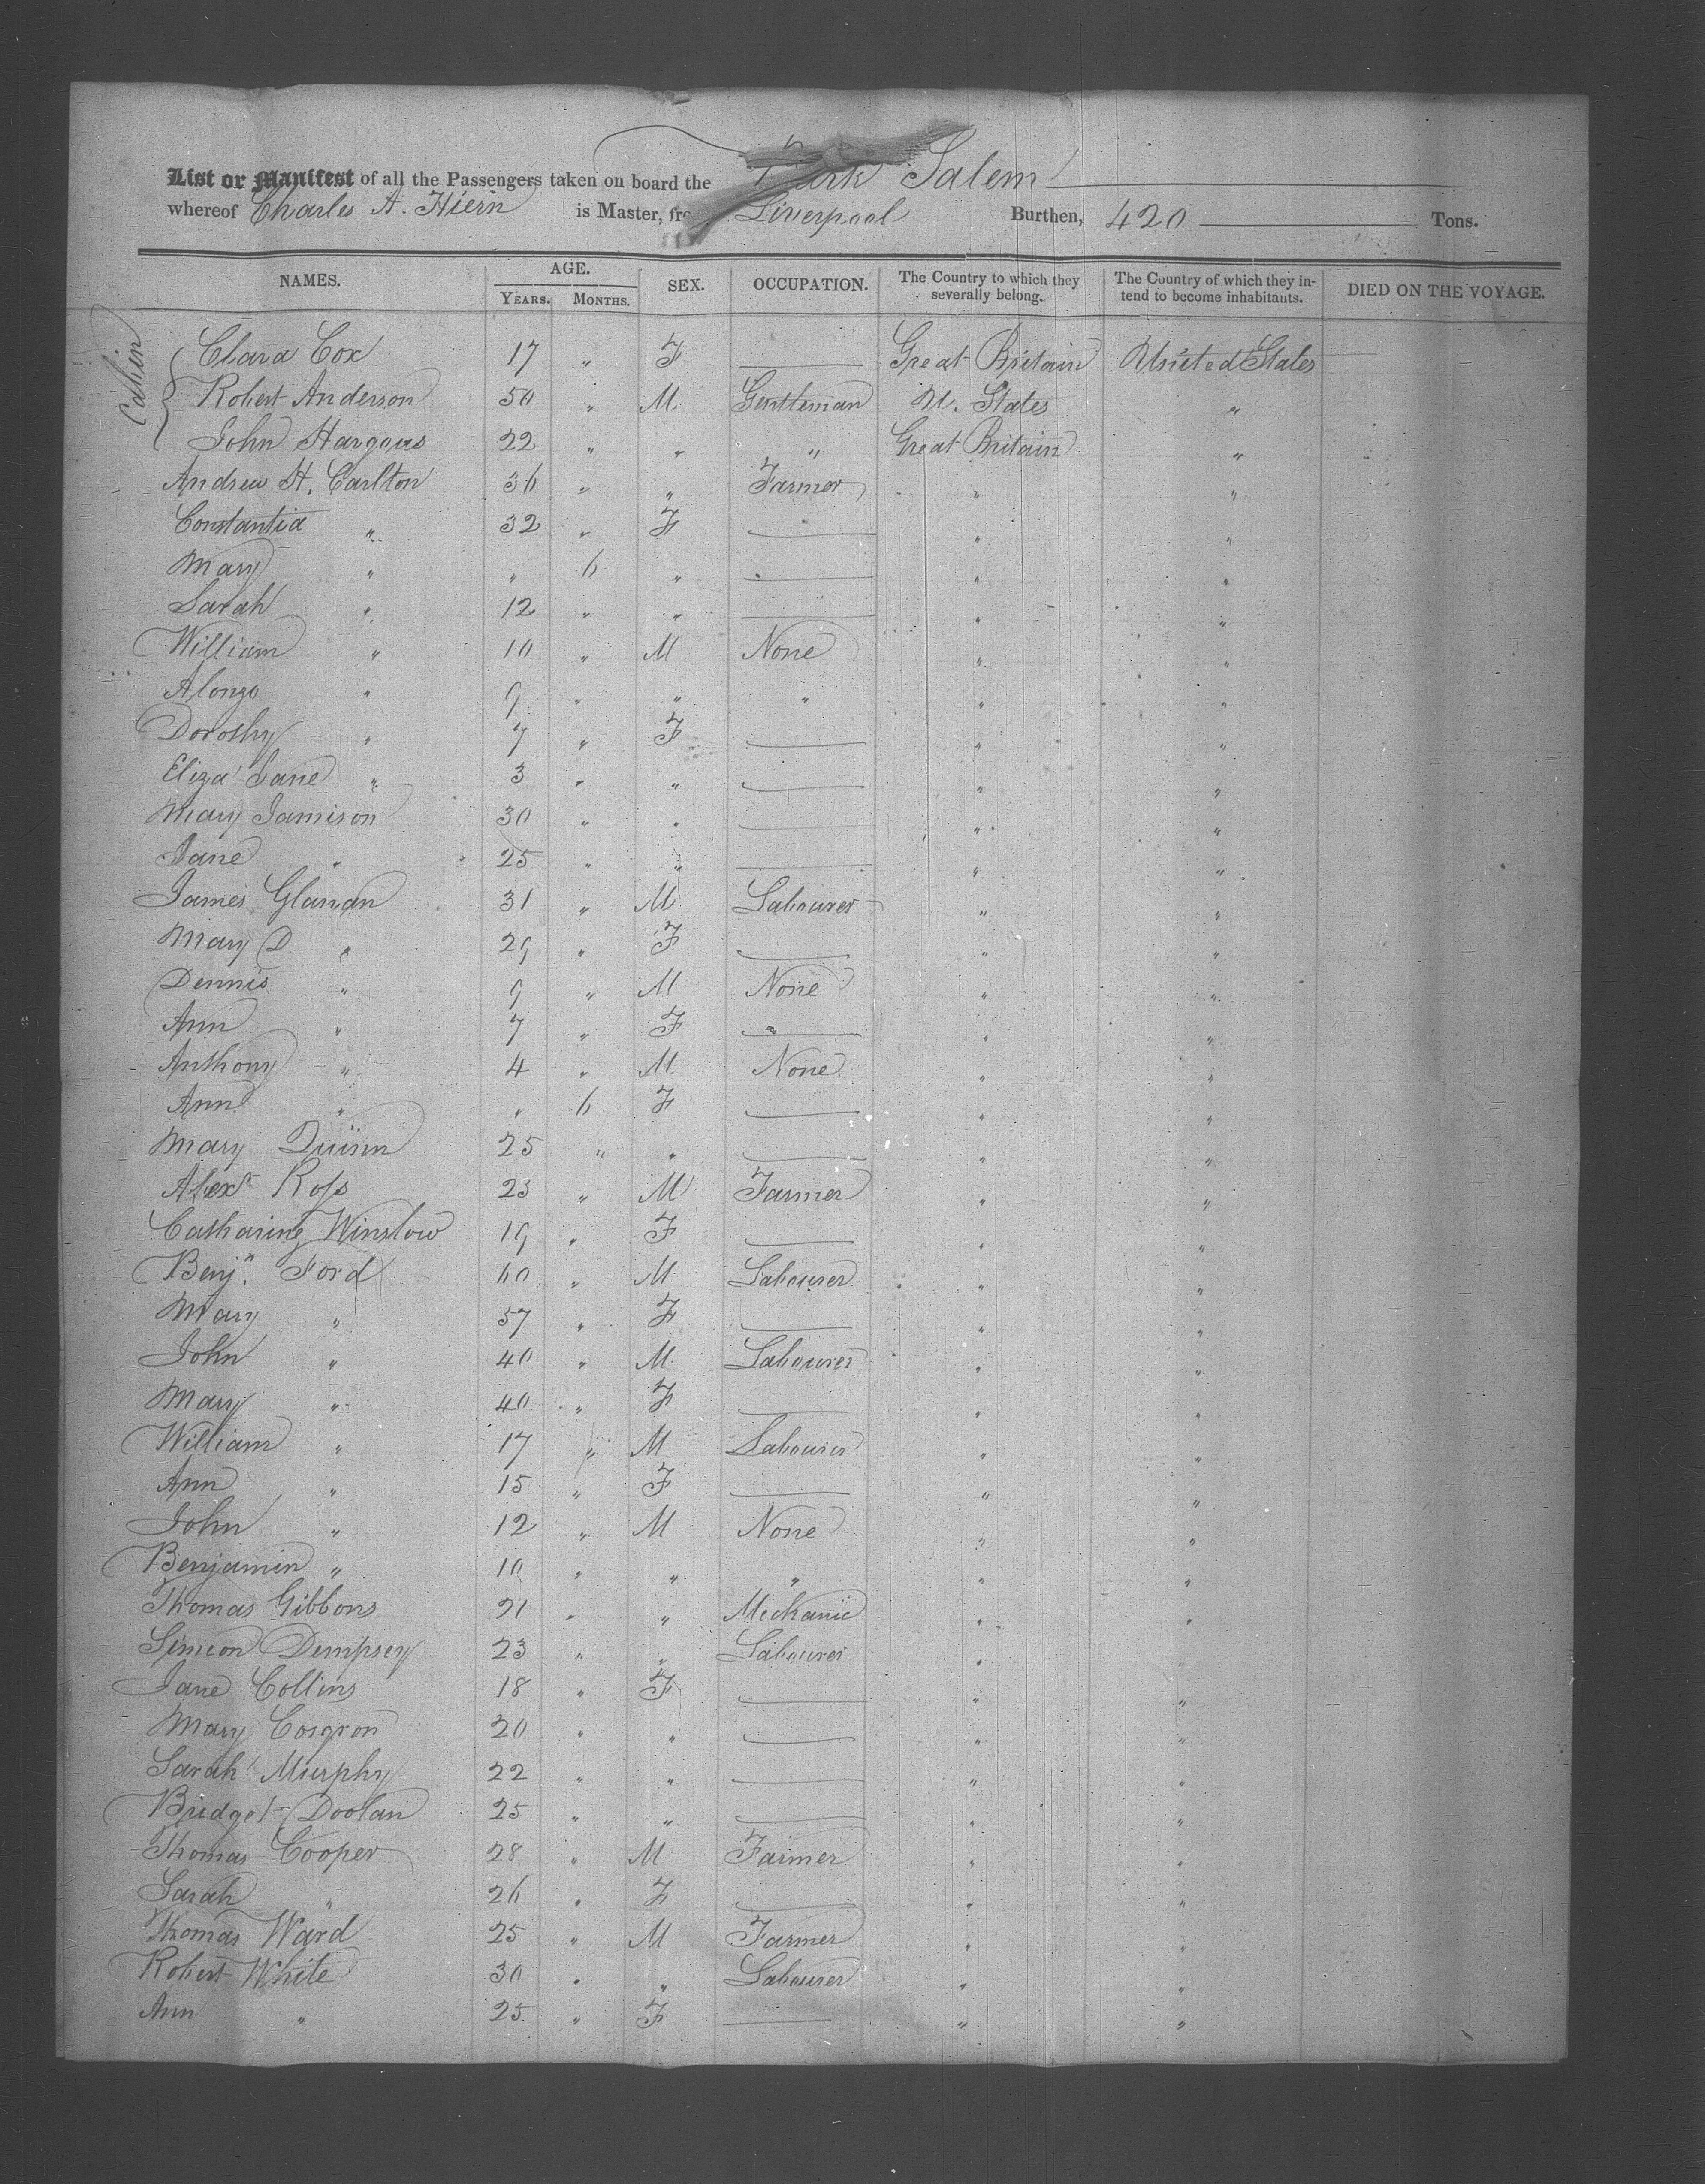 List or Manifest of all the Passengers taken on board the Bark Salem
whereof Charles A. Hiern is Master, fro Liverpool Burthen, 420 Tons.
NAMES. AGE. YEARS. MONTHS. SEX. OCCUPATION. The Country to which they severally belong. The Country of which they intend to become inhabitants. DIED ON THE VOYAGE.
Cabin
Clara Cox 17 " F — Great Britain United States
Robert Anderson 50 " M Gentleman U. States "
John Hargous 22 " " " Great Britain "
Andrew H. Carlton 36 " " Farmer " "
Constantia " 32 " F — " "
Mary " " 6 " — " "
Sarah " 12 " " — " "
William " 10 " M None " "
Alonzo " 9 " " " " "
Dorothy " 7 " F — " "
Eliza Jane " 3 " " — " "
Mary Jamison 30 " " — " "
Jane " 25 " " — " "
James Glanan 31 " M Labourer " "
Mary D " 29 " F — " "
Dennis " 9 " M None " "
Ann " 7 " F — " "
Anthony " 4 " M None " "
Ann " " 6 F — " "
Mary Quinn 25 " " — " "
Alext Ross 23 " M Farmer " "
Catharine Winslow 19 " F — " "
Benjn. Ford 60 " M Labourer " "
Mary " 57 " F — " "
John " 40 " M Labourer " "
Mary " 40 " F — " "
William " 17 " M Labourer " "
Ann " 15 " F — " "
John " 12 " M None " "
Benjamin " 10 " " " " "
Thomas Gibbons 21 " " Mechanic " "
Simeon Dempsey 23 " " Labourer " "
Jane Collins 18 " F — " "
Mary Cosgron 20 " " — " "
Sarah Murphy 22 " " — " "
Bridget Doolan 25 " " — " "
Thomas Cooper 28 " M Farmer " "
Sarah " 26 " F — " "
Thomas Ward 25 " M Farmer " "
Robert White 30 " " Labourer " "
Ann " 25 " F — " "